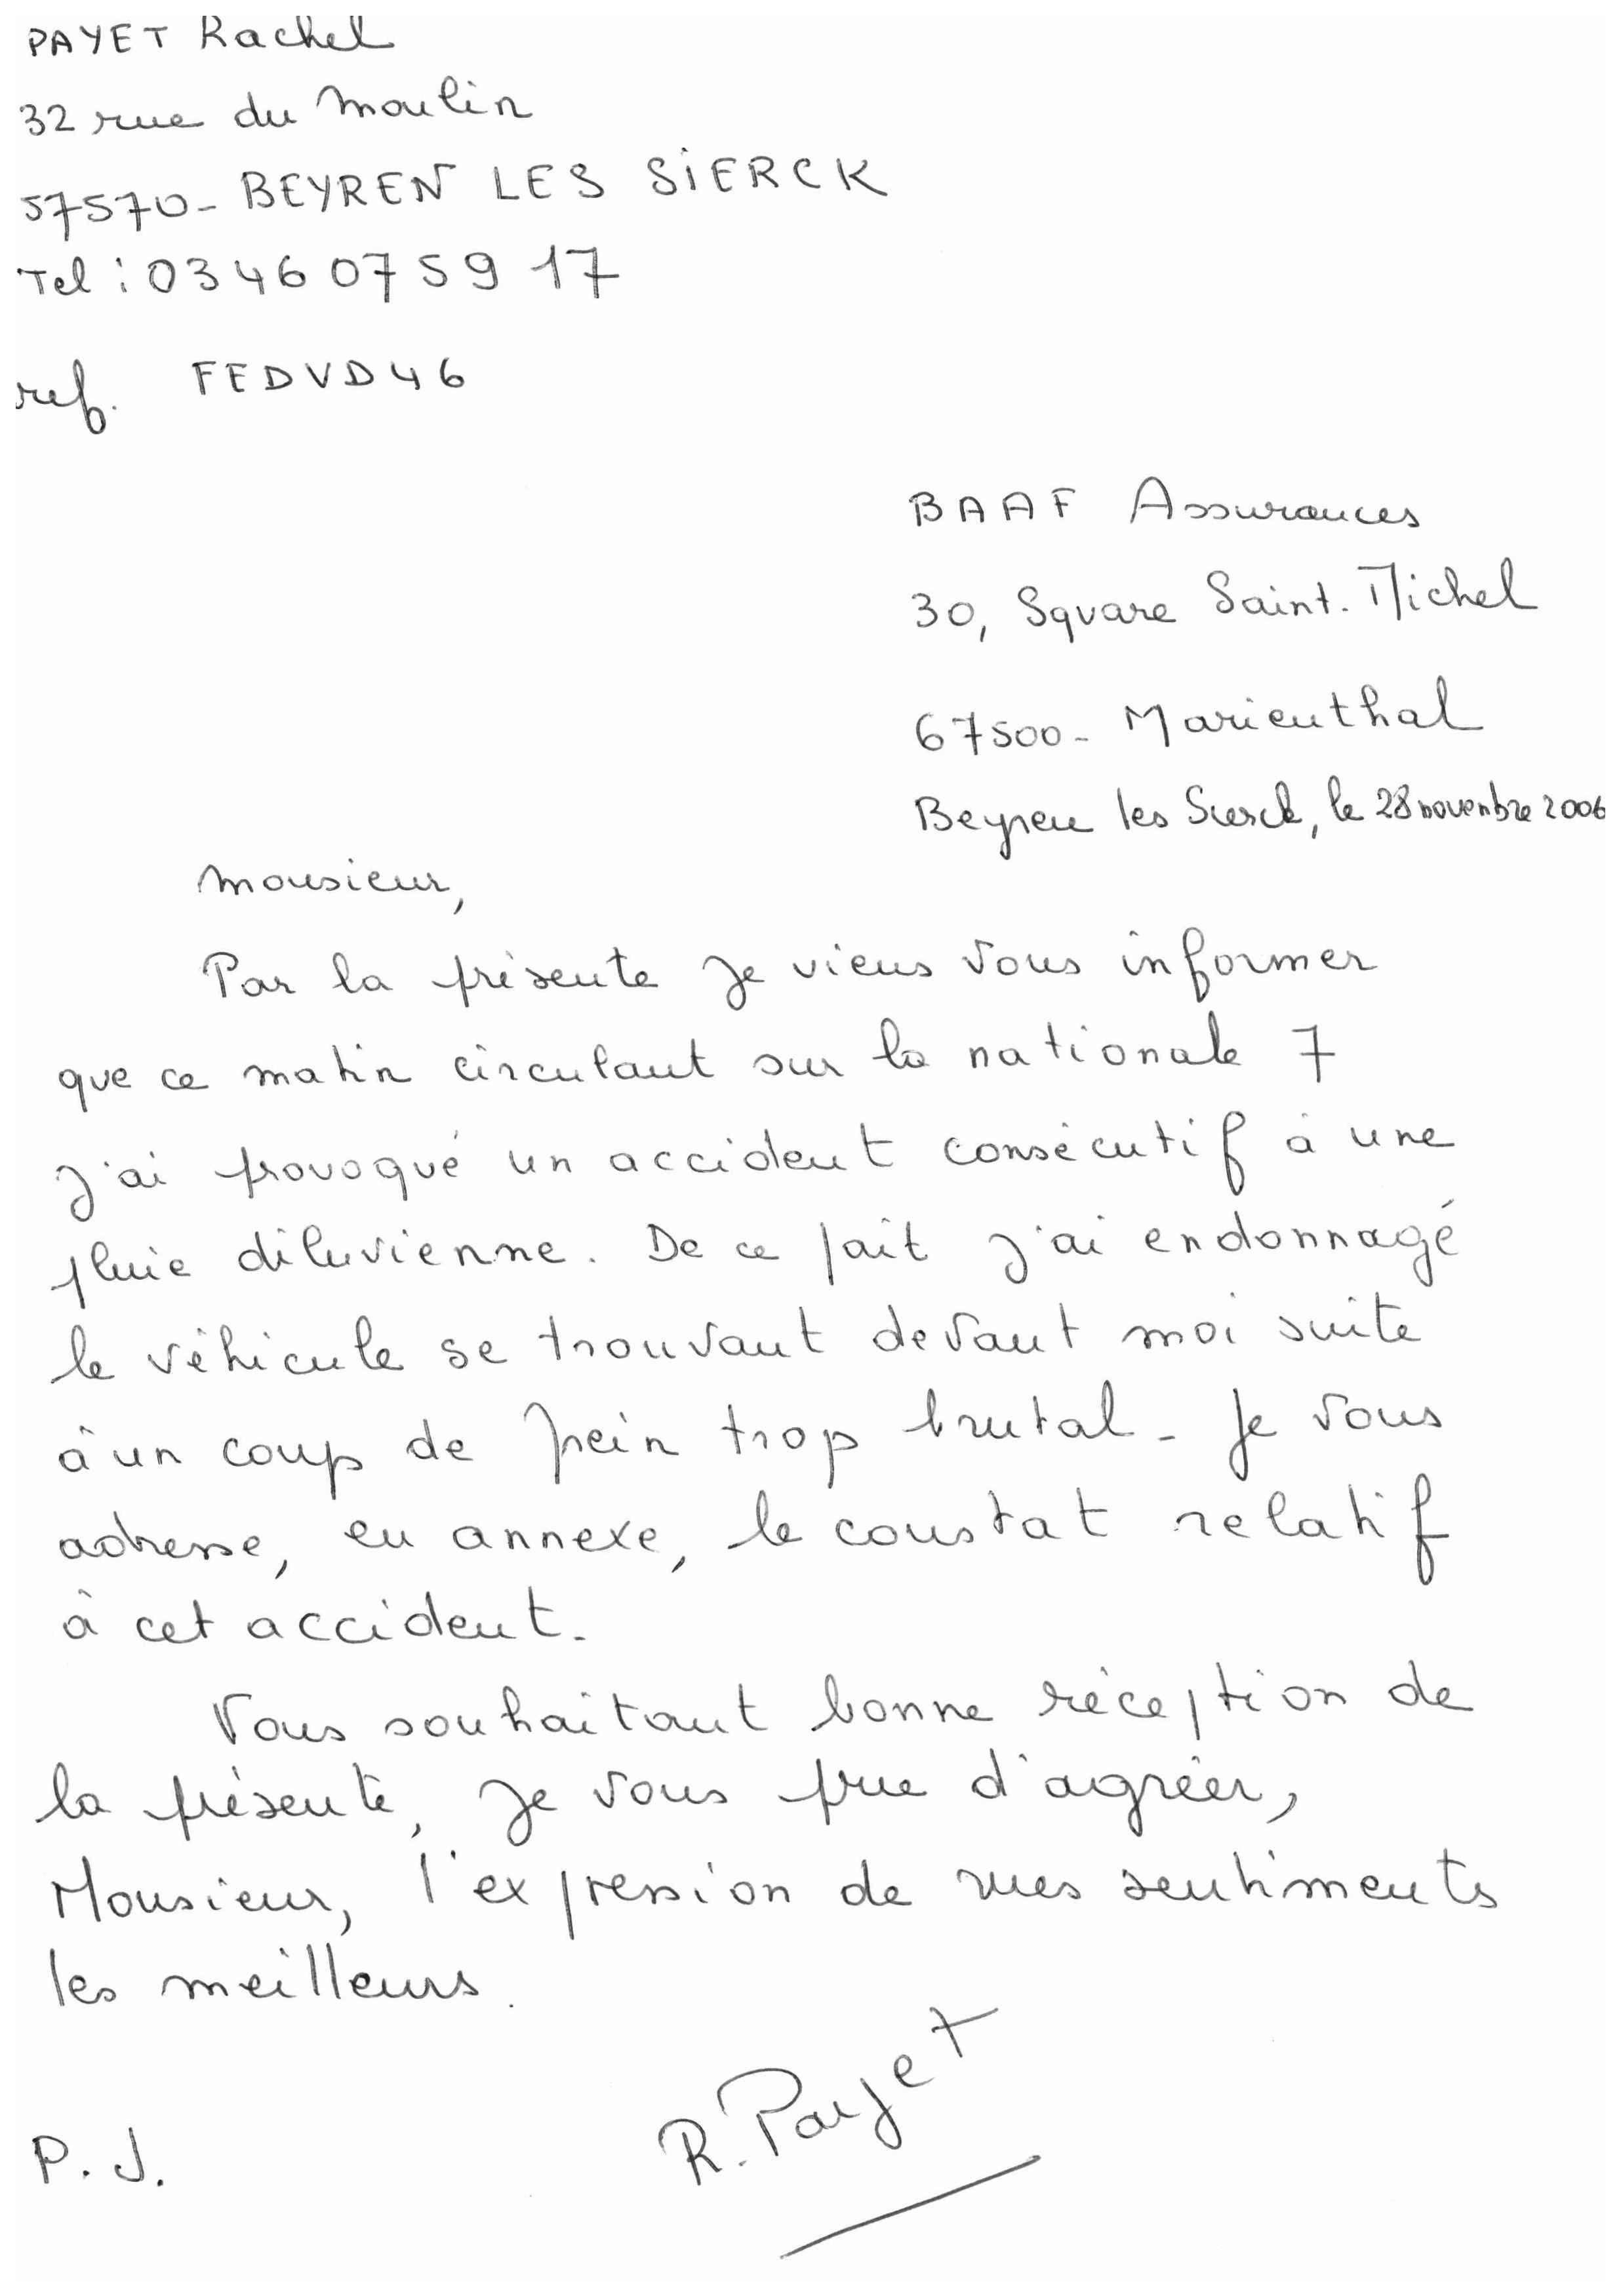 PAYET Rachel
32 rue du Moulin
57570 - BEYREN LES SIERCK
Tel : 03 46 07 59 17
ref. FEDVD46
BAAF Assurances
30, Square Saint-Michel
67500 - Marienthal
Beyren les Sierck, le 28 novembre 2006
Monsieur,
Par la présente je viens vous informer
que ce matin circulant sur la nationale 7
j'ai provoqué un accident consécutif à une
pluie diluvienne. De ce fait j'ai endonnagé
le véhicule se trouvant devant moi suite
à un coup de frein trop brutal - Je vous
adresse, en annexe, le constat relatif
à cet accident.
Vous souhaitant bonne réception de
la présente, je vous prie d'agréer,
Monsieur, l'expression de mes sentiments
les meilleurs.
R. Payet
P.J.